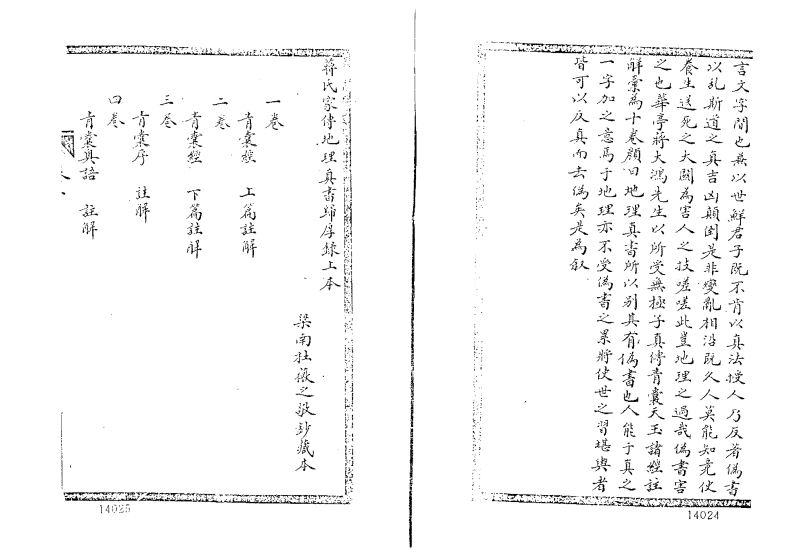 言文字間也無以世鮮君子既不肯以真法授人乃反著偽書
以乱斯道之真吉凶顛倒是非變亂相沿既久人莫能知竟使
養生送死之大關為害人之技嗟嗟此豈地理之過哉偽書害
之也華亭蔣大鴻先生以所受無極子真傳青囊天玉諸經註
解彙為十卷顏曰地理真書所以别其有偽書也人能于真之
一字加之意焉于地理亦不受偽書之累將使世之習堪輿者
皆可以反真而去偽矣是為叙
14024
蔣氏家傳地理真書歸厚錄上本
梁南杜 之 鈔藏本
一卷
青囊經 上篇註解
二卷
青囊經 下篇註解
三卷
青囊序 註解
四卷
青囊奥語 註解
14025